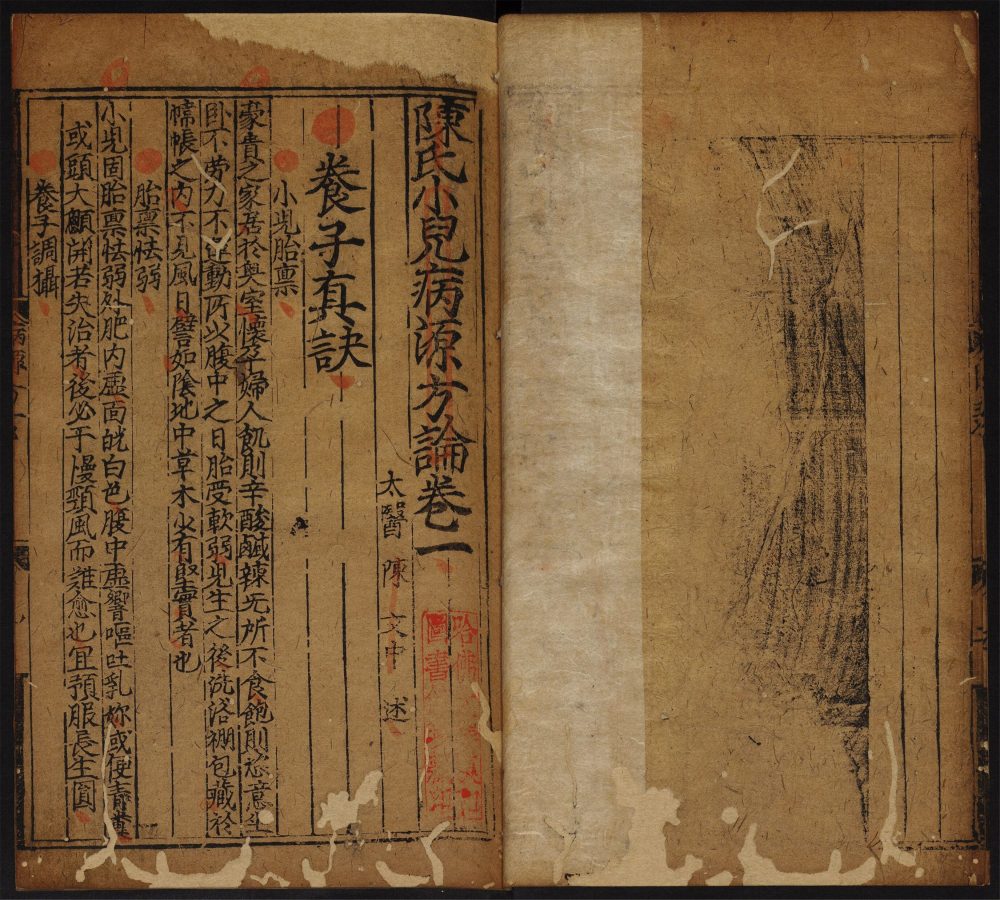 陳氏小兒病源方論卷一
太醫 陳 文中 述
養子真訣
小兒胎禀
豪貴之家居於奧室懷孕婦人飢則辛酸鹹辣无所不食飽則恣意坐
卧不劳力不運動所以腹中之日胎受軟弱児生之後洗浴綳包藏於
幃帳之内不見風日譬如隂地中草木少有堅實者也
胎禀怯弱
小児固胎禀怯弱外肥内虚面㿠白色腹中虚響嘔吐乳妳或便青糞
或頭大顱開若失治者後必干慢頸風而難愈也冝預服長生圓
養子調攝
哈佛
圖書